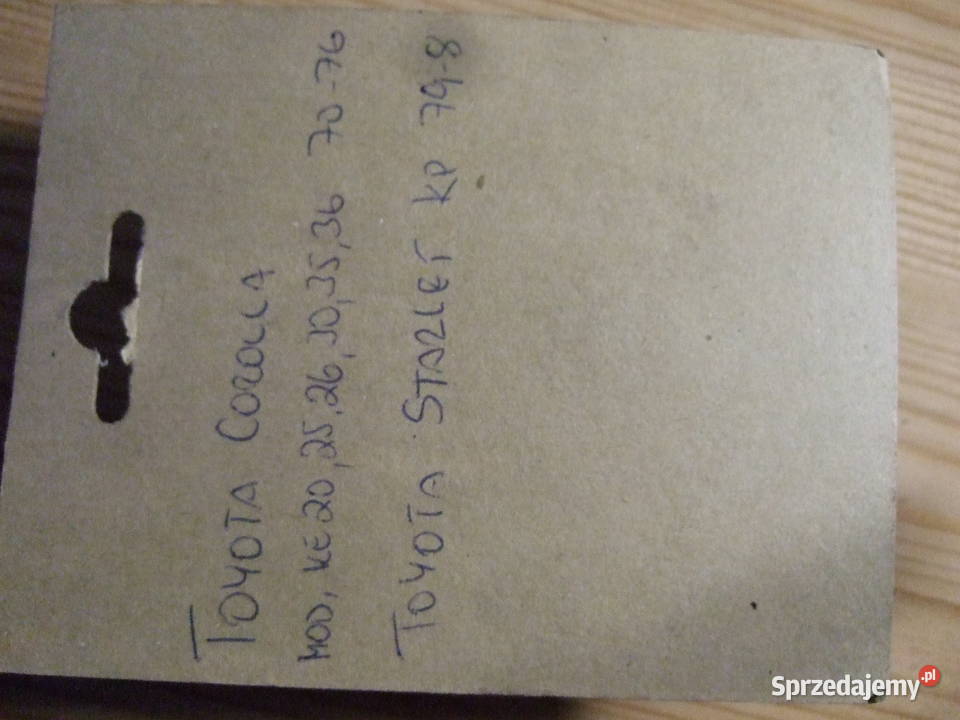 TOYOTA COROLLA
MOD, KE20,25,26,30,35,36 70-76
TOYOTA STARLET KP 79-8
Sprzedajemy.pl